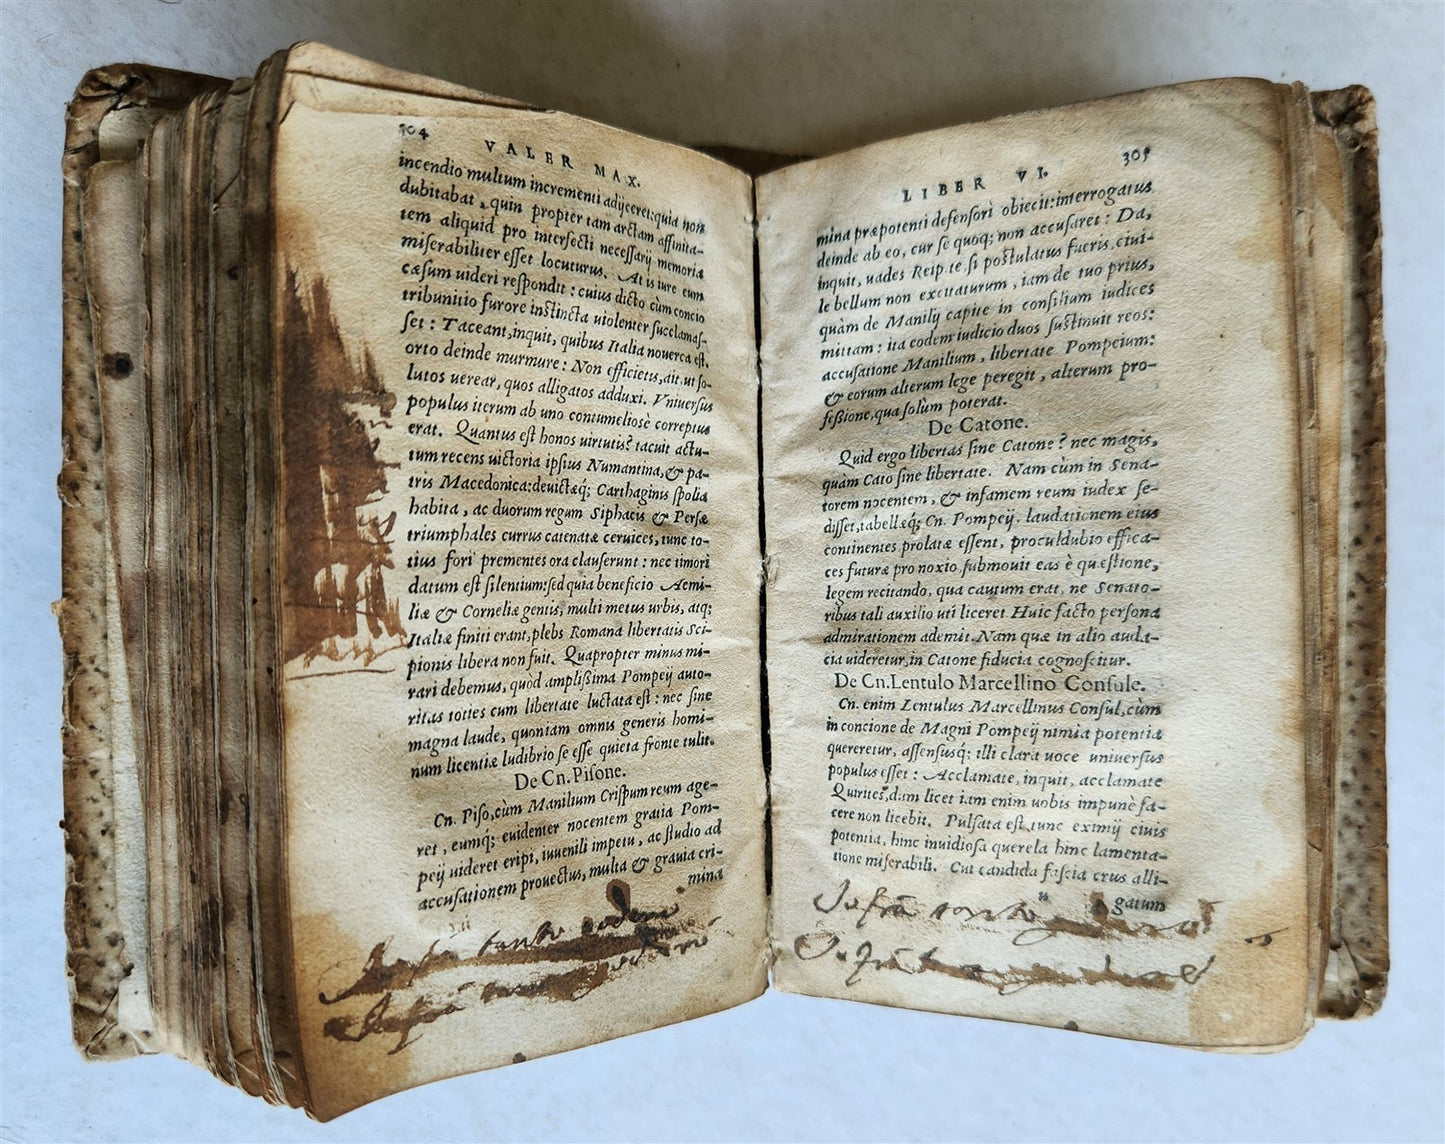 304
VALER MAX.
incendio multum incrementi adijceret: quia non
dubitabat, quin propter tam arctam affinita-
tem aliquid pro interfecti necessarij memoria
miserabiliter esset locuturus. At is iure eum
cæsum uideri respondit: cuius dicto cùm concio
tribunitio furore instincta uiolenter succlamas-
set: Taceant, inquit, quibus Italia nouerca est.
orto deinde murmure: Non efficietis, ait, ut so-
lutos uerear, quos alligatos adduxi. Vniuersus
populus iterum ab uno contumeliosè correptus
erat. Quantus est honos uirtutis? tacuit actu-
tum recens uictoria ipsius Numantina, & pa-
tris Macedonica: deuictæq; Carthaginis spolia
habita, ac duorum regum Siphacis & Persæ
triumphales currus catenatæ ceruices, tunc to-
tius fori prementes ora clauserunt: nec timori
datum est silentium: sed quia beneficio Aemi-
liæ & Corneliæ gentis, multi metus urbis, atq;
Italiæ finiti erant, plebs Romana libertatis Sci-
pionis libera non fuit. Quapropter minus mi-
rari debemus, quòd amplißima Pompeij auto-
ritas toties cum libertate luctata est: nec sine
magna laude, quoniam omnis generis homi-
num licentiæ ludibrio se esse quieta fronte tulit.
De Cn. Pisone.
Cn. Piso, cùm Manilium Crispum reum age-
ret, eumq; euidenter nocentem gratia Pom-
peij uideret eripi, iuuenili impetu, ac studio ad
accusationem prouectus, multa & grauia cri-
mina
LIBER VI.
305
mina præpotenti defensori obiecit: interrogatus
deinde ab eo, cur se quoq; non accusaret: Da,
inquit, uades Reip. te, si postulatus fueris, ciui-
le bellum non excitaturum, iam de tuo prius,
quàm de Manilij capite in consilium iudices
mittam: ita eodem iudicio duos sustinuit reos:
accusatione Manilium, libertate Pompeium:
& eorum alterum lege peregit, alterum pro-
feßione, qua solùm poterat.
De Catone.
Quid ergo libertas sine Catone? nec magis,
quàm Cato sine libertate. Nam cùm in Sena-
torem nocentem, & infamem reum iudex se-
disset, tabellæq; Cn. Pompeij. laudationem eius
continentes prolatæ essent, proculdubio effica-
ces futuræ pro noxio, submouit eas è quæstione,
legem recitando, qua cautum erat, ne Senato-
ribus tali auxilio uti liceret. Huic facto persona
admirationem ademit. Nam quæ in alio auda-
cia uideretur, in Catone fiducia cognoscitur.
De Cn. Lentulo Marcellino Consule.
Cn. enim Lentulus Marcellinus Consul, cùm
in concione de Magni Pompeij nimia potentia
quereretur, assensusq́; illi clara uoce uniuersus
populus esset: Acclamate, inquit, acclamate
Quirites, dum licet iam enim uobis impunè fa-
cere non licebit. Pulsata est tunc eximij ciuis
potentia, hinc inuidiosa querela hinc lamenta-
tione miserabili. Cui candida fascia crus alli-
u
gatum